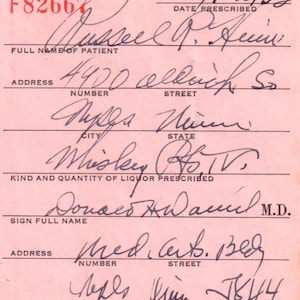 F82667
DATE PRESCRIBED
Russell
FULL NAME OF PATIENT
ADDRESS 4900 Aldrich So
NUMBER STREET
Mpls Minn
CITY STATE
Whiskey
KIND AND QUANTITY OF LIQUOR PRESCRIBED
Donald H Daniel M.D.
SIGN FULL NAME
ADDRESS Med. Arts. Bldg
NUMBER STREET
Mpls Minn